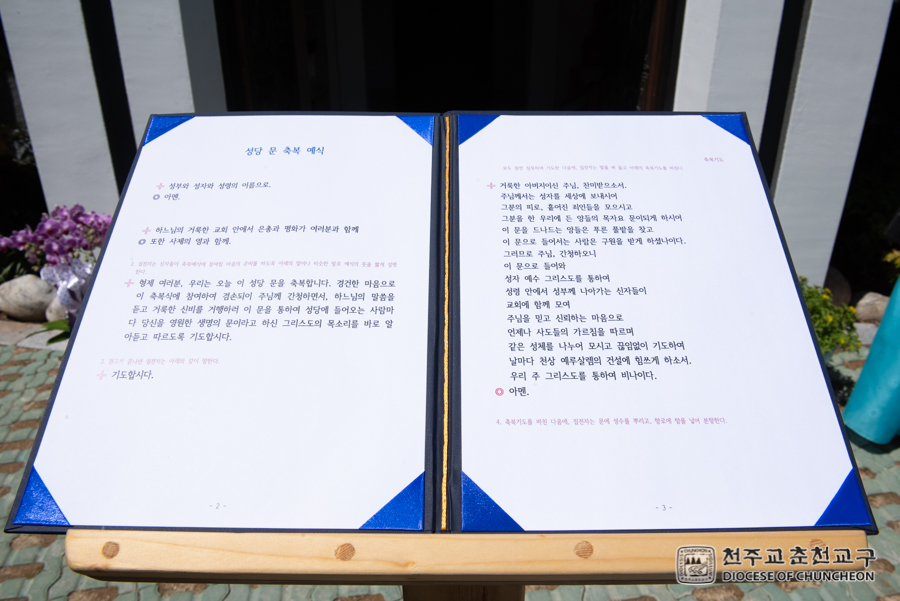 성당 문 축복 예식
✢ 성부와 성자와 성령의 이름으로.
○ 아멘.
✢ 하느님의 거룩한 교회 안에서 은총과 평화가 여러분과 함께
○ 또한 사제의 영과 함께.
✢ 형제 여러분, 우리는 오늘 이 성당 문을 축복합니다. 경건한 마음으로
이 축복식에 참여하여 겸손되이 주님께 간청하면서, 하느님의 말씀을
듣고 거룩한 신비를 거행하러 이 문을 통하여 성당에 들어오는 사람마
다 당신을 영원한 생명의 문이라고 하신 그리스도의 목소리를 바로 알
아듣고 따르도록 기도합시다.
✢ 기도합시다.
- 2 -
축복기도
✢ 거룩한 아버지이신 주님, 찬미받으소서.
주님께서는 성자를 세상에 보내시어
그분의 피로, 흩어진 죄인들을 모으시고
그분을 한 우리에 든 양들의 목자요 문이되게 하시어
이 문을 드나드는 양들은 푸른 풀밭을 찾고
이 문으로 들어서는 사람은 구원을 받게 하셨나이다.
그러므로 주님, 간청하오니
이 문으로 들어와
성자 예수 그리스도를 통하여
성령 안에서 성부께 나아가는 신자들이
교회에 함께 모여
주님을 믿고 신뢰하는 마음으로
언제나 사도들의 가르침을 따르며
같은 성체를 나누어 모시고 끊임없이 기도하여
날마다 천상 예루살렘의 건설에 힘쓰게 하소서.
우리 주 그리스도를 통하여 비나이다.
○ 아멘.
4. 축복기도를 마친 다음에, 집전자는 문에 성수를 뿌리고, 향로에 향을 넣어 분향한다.
- 3 -
천주교춘천교구
DIOCESE OF CHUNCHEON